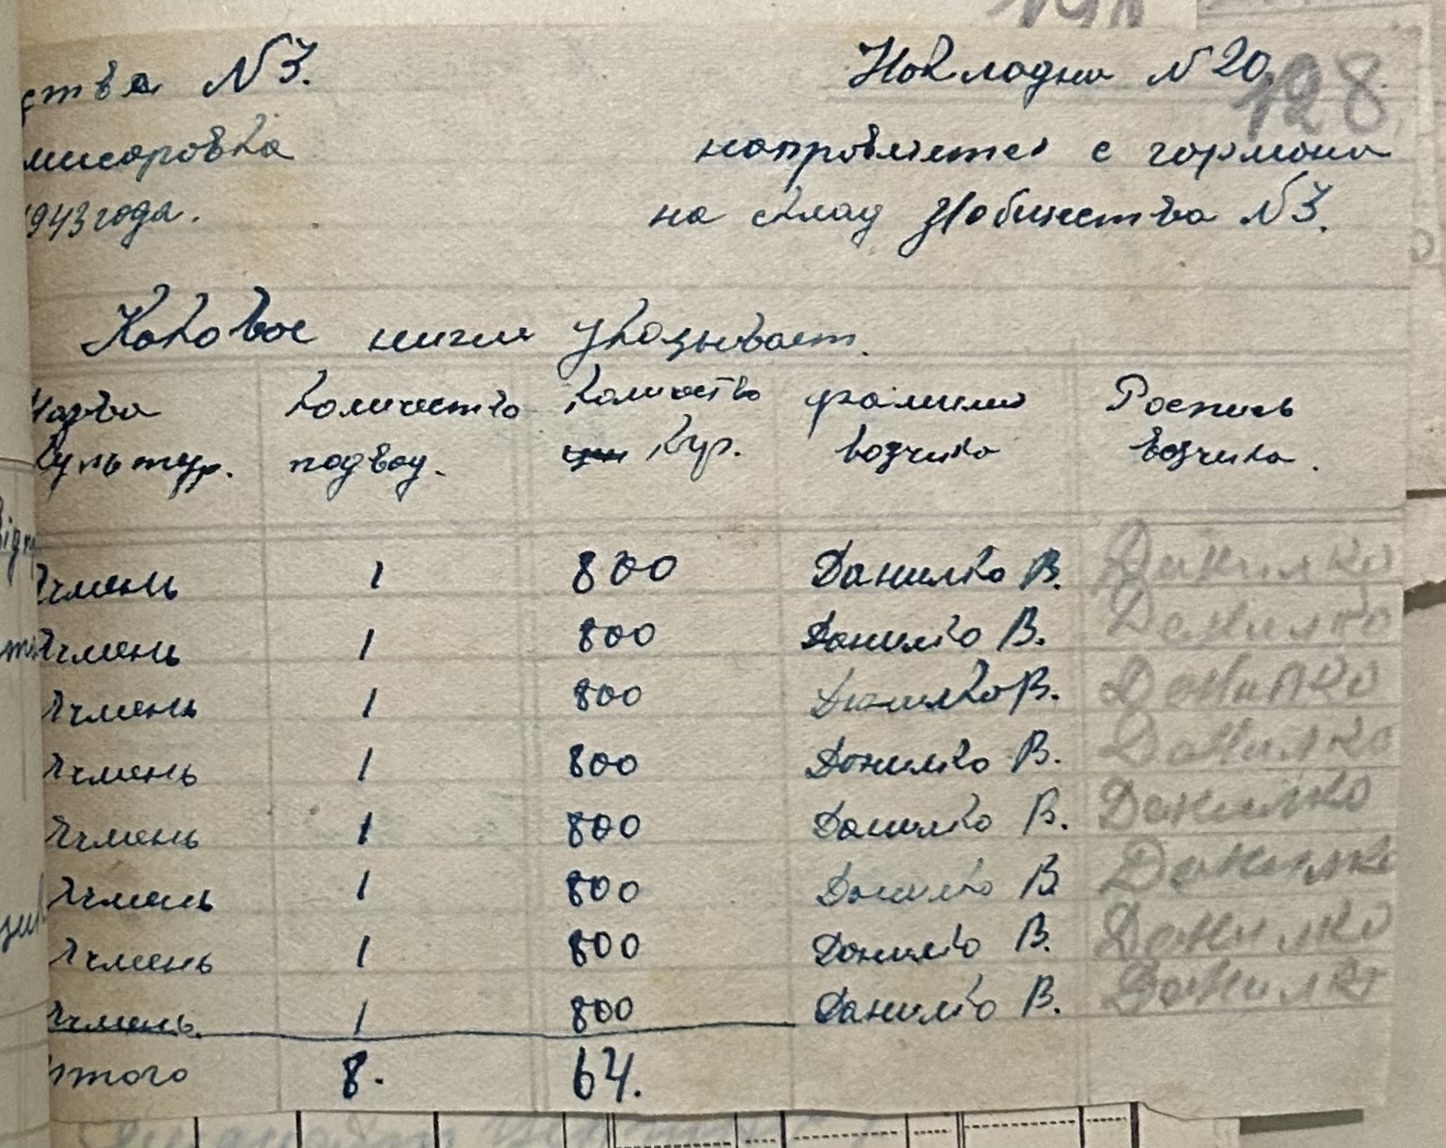 ства №3. Накладна №20
128
мисаровка направляется с гармана
1943 года. на склад Иобщества №3.
Каковое ниже указывает.
Назва количество количество фамилия Роспись
культур. подвод. кур. возчика возчика.
Ячмень 1 800 Данилко В. Данилко
Ячмень 1 800 Данилко В. Данилко
Ячмень 1 800 Данилко В. Данилко
Ячмень 1 800 Данилко В. Данилко
Ячмень 1 800 Данилко В. Данилко
Ячмень 1 800 Данилко В Данилко
Ячмень 1 800 Данилко В. Данилко
Ячмень 1 800 Данилко В. Данилко
Итого 8. 64.